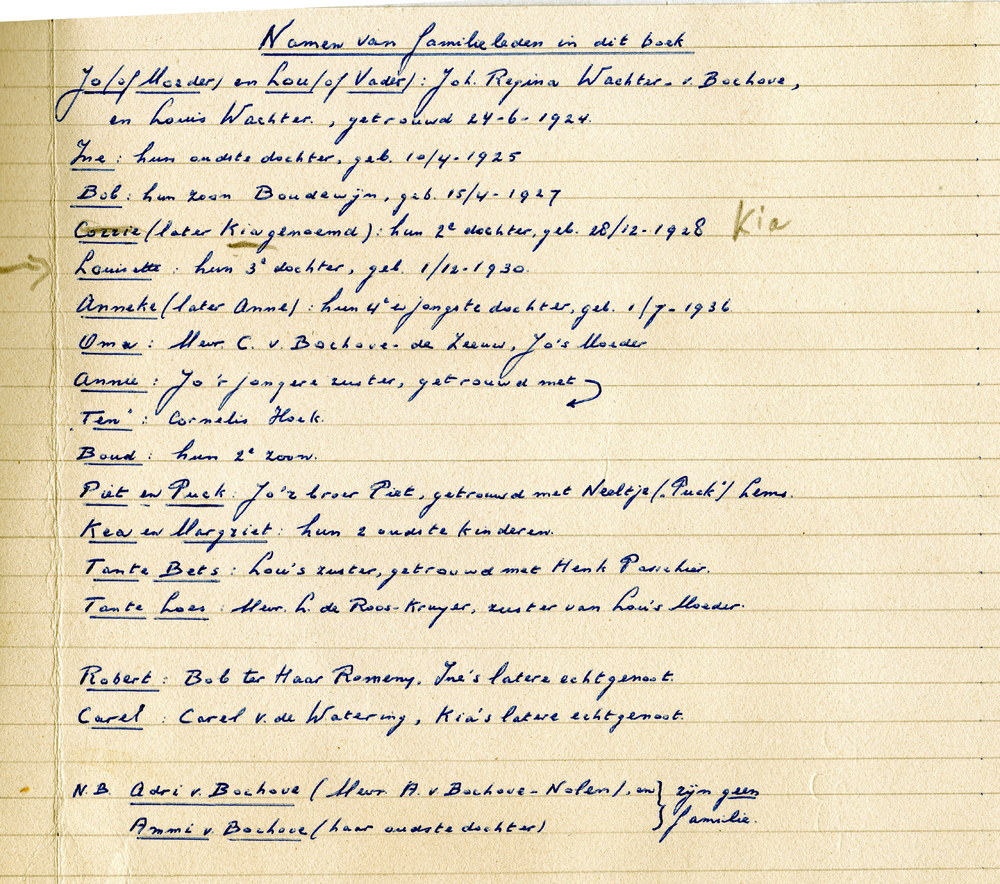 Namen van familieleden in dit boek
Jo (of Moeder) en Lou (of Vader): Joh. Regina Wachter - v. Bochove,
en Louis Wachter., getrouwd 24-6-1924.
Ine: hun oudste dochter, geb. 10/4-1925
Bob: hun zoon Boudewijn, geb. 15/4-1927
Corrie (later Kia genoemd): hun 2e dochter, geb. 28/12-1928 Kia
Louisette: hun 3e dochter, geb. 1/12-1930.
Anneke (later Anne): hun 4e en jongste dochter, geb. 1/7-1936.
Oma: Mevr. C. v. Bochove - de Leeuw, Jo's Moeder
Annie: Jo's jongere zuster, getrouwd met
Ten': Cornelis Hoek.
Boud: hun 2e zoon.
Piet en Puck: Jo's broer Piet, getrouwd met Neeltje ("Puck") Lems.
Kea en Margriet: hun 2 oudste kinderen.
Tante Bets: Lou's zuster, getrouwd met Henk
Tante Loes: Mevr. L. de Roos-Kruyer, zuster van Lou's Moeder.
Robert: Bob ter Haar Romeny. Ine's latere echtgenoot.
Carel: Carel v. de Watering, Kia's latere echtgenoot.
N.B. Adri v. Bochove (Mevr. A. v. Bochove-Nolen), en } zijn geen
Ammi v. Bochove (haar oudste dochter) } familie.